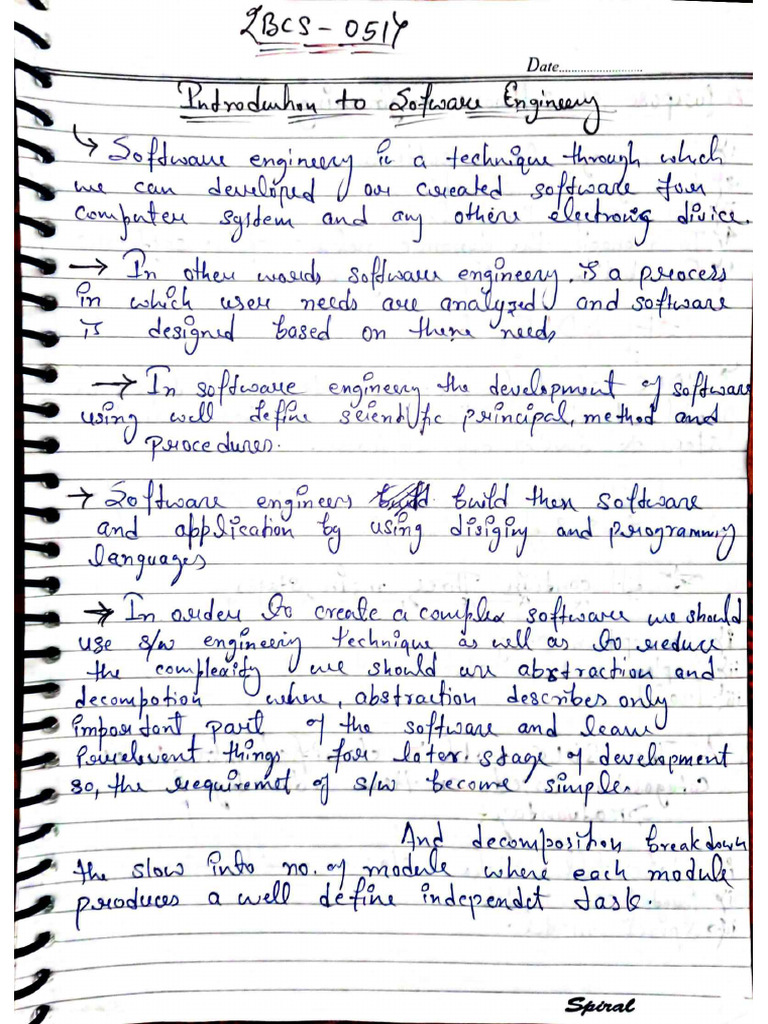 2BCS-0514
Date
Introduction to Sofware Engineery
Software engineery is a technique through which
we can developed or created software for
computer system and any othere electronic divice.
→ In other words software engineery. is a process
in which user needs are analyzed and software
is designed based on there needs
→ In software engineery the development of software
using well define scientific principal, method and
procedures.
→ Software engineers build then software
and application by using disiging and programming
languages
→ In order to create a complex software we should
use s/w engineering technique as well as to reduce
the complexity we should use abstraction and
decompotion where, abstraction describes only
important part of the software and leave
irrelevent things for later stage of development
so, the requiremet of s/w become simple.
And decomposition breakdown
the slow into no. of module where each module
produces a well define independet task.
Spiral